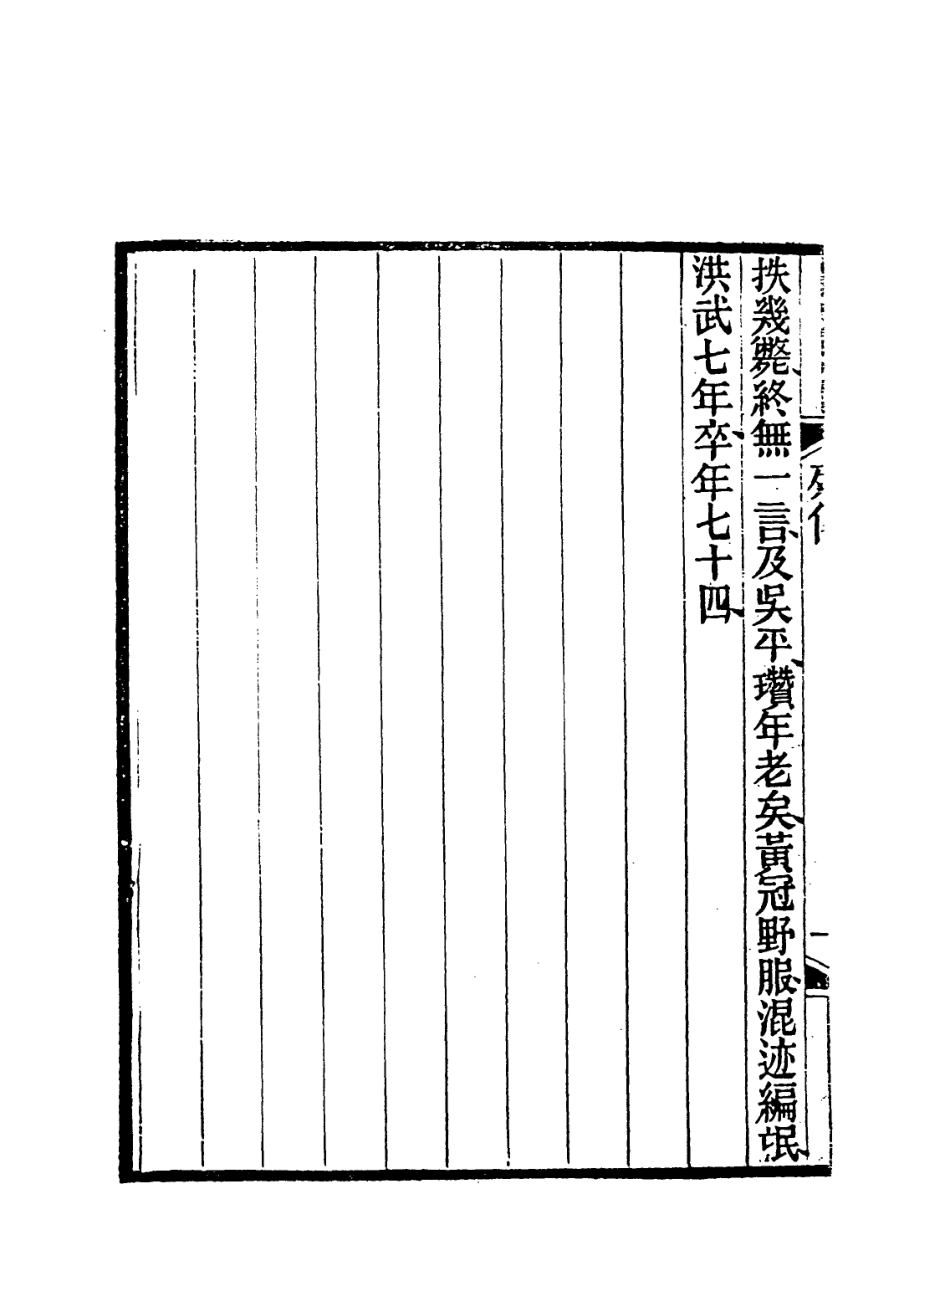 抶幾斃終無一言及吳平瓚年老矣黃冠野服混迹編氓
洪武七年卒年七十四